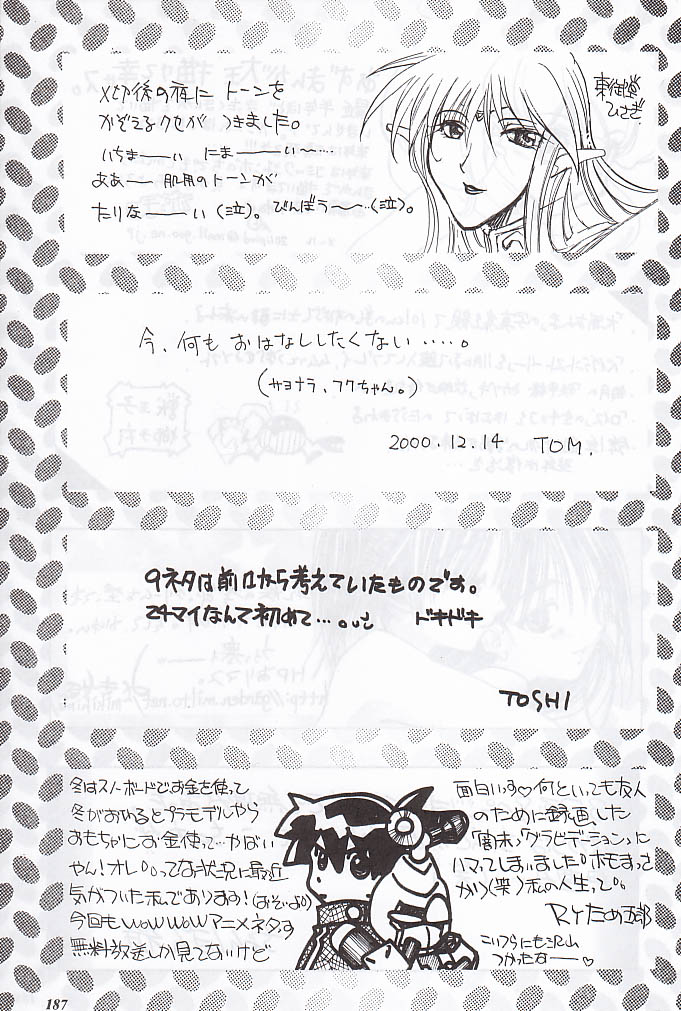 〆切後の夜に トーンを
かぞえるクセが つきました。
いちまーーい にまーーい〜…
ああー 肌用のトーンが
たりなーーい(泣)。びんぼう〜〜…(泣)。
東御堂
ひさぎ
今、何も おはなししたくない ‥‥。
(サヨナラ、フクちゃん。)
2000.12.14 TOM.
9ネタは前から考えていたものです。
24マイなんて初めて…。 ドキドキ
TOSHI
冬はスノーボードでお金を使って
冬がおわるとプラモデルやら
おもちゃにお金使って…やばい
やん!オレ。ってな状況に最近
気がついた私であります!(おそいよ!)
今回もWOWWOWアニメネタっす
無料放送しか見てないけど
面白いっす♡何といっても友人
のために録画した
「闇末」「グラビテーション」に
ハマってしまいました。ホモまっさ
かり(笑)私の人生って。
RYため五郎
こいつらにも沢山
つかったなーー♡
187